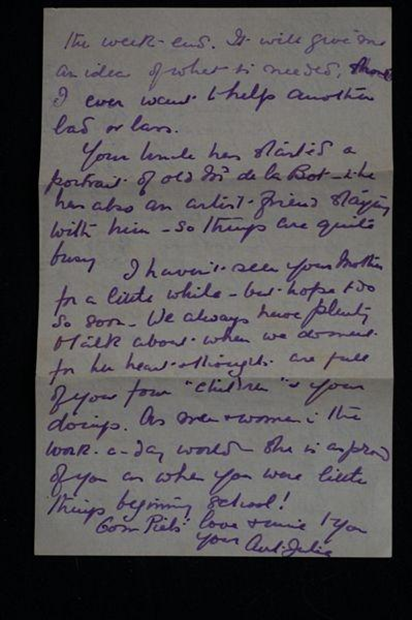 the week-end. It will give me
an idea of what is needed, should
I ever want to help another
lad or lass.
Your Uncle has started a
portrait of old Mr de la Bot - He
has also an artist-friend staying
with him - so things are quite
busy
I haven't seen your Mother
for a little while - but hope to do
so soon - We always have plenty
to talk about when we do meet
for her heart & thoughts are full
of you four "children" & your
doings. As men & women in the
work-a-day world she is as proud
of you as when you were little
things beginning school!
love & mine to you
your Aunt Julia